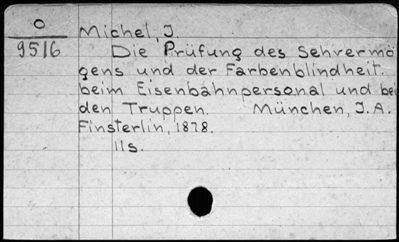 O
9516
Michel, J.
Die Prüfung des Sehvermö
gens und der Farbenblindheit.
beim Eisenbahnpersonal und bei
den Truppen. München, J.A.
Finsterlin, 1878.
11s.